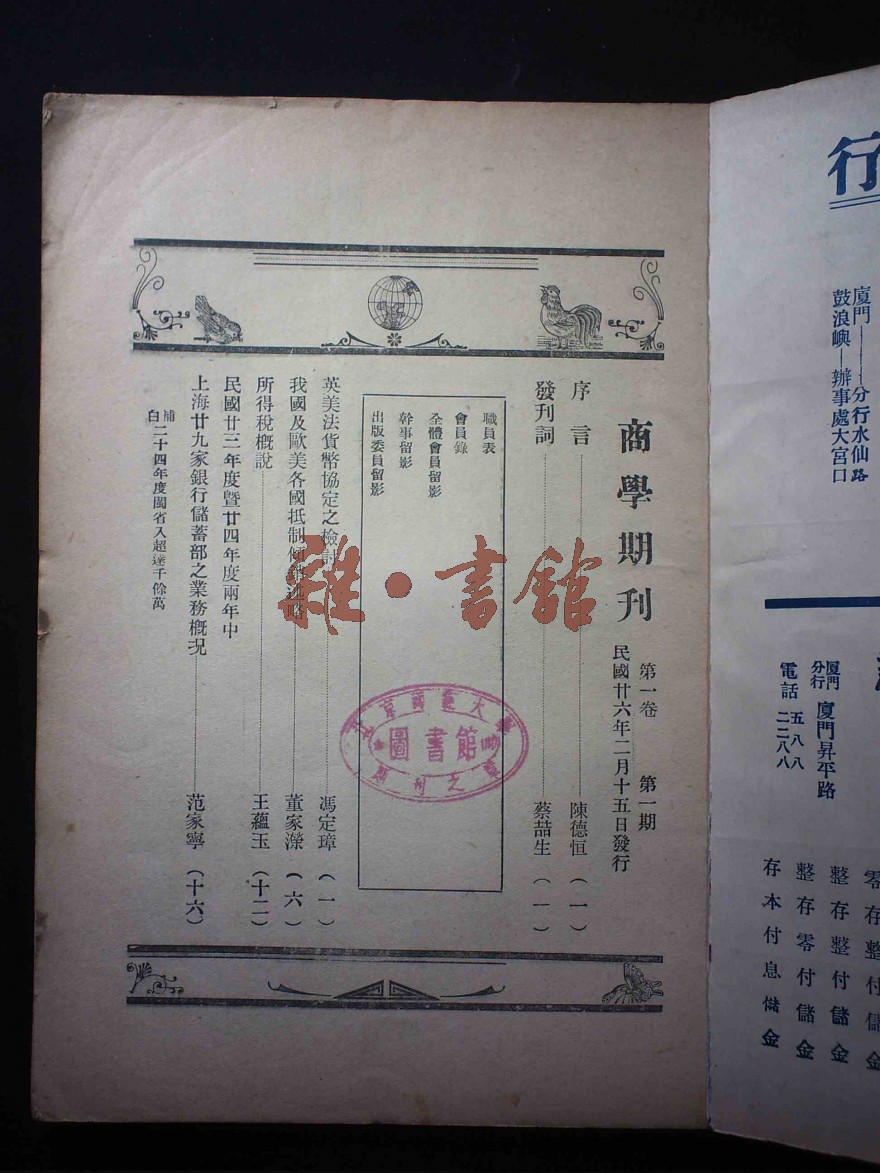 商學期刊
第一卷 第一期
民國廿六年二月十五日發行
序言 陳德恒（一）
發刊詞 蔡喆生（一）
職員表
會員錄
全體會員留影
幹事留影
出版委員留影
英美法貨幣協定之檢討 馮定璋（一）
我國及歐美各國抵制傾銷述略 董家濚（六）
所得稅概說 王蘊玉（十二）
民國廿三年度暨廿四年度兩年中
上海廿九家銀行儲蓄部之業務概況 范家寧（十六）
補白 二十四年度閩省入超達千餘萬
雜·書館
圖書館
期刊之章
行
廈門——分行水仙路
鼓浪嶼—辦事處大宮口
廈門分行 廈門昇平路
電話 五八八 二二八八
零存整付儲金
整存整付儲金
整存零付儲金
存本付息儲金